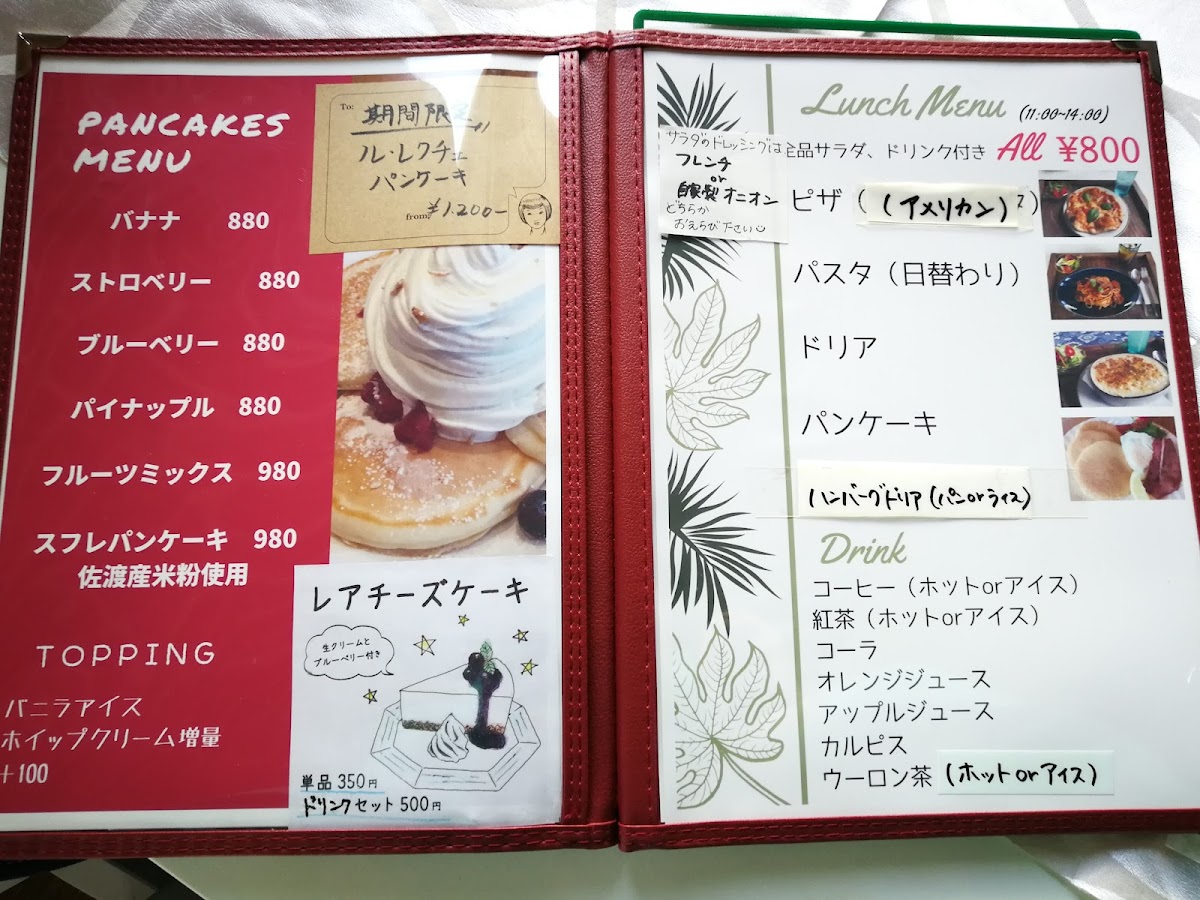 PANCAKES
MENU
バナナ 880
ストロベリー 880
ブルーベリー 880
パイナップル 880
フルーツミックス 980
スフレパンケーキ 980
佐渡産米粉使用
TOPPING
バニラアイス
ホイップクリーム増量
+100
To:
期間限定
ル・レクチェ
パンケーキ
from:
¥1,200-
レアチーズケーキ
生クリームと
ブルーベリー付き
単品 350円
ドリンクセット 500円
Lunch Menu (11:00~14:00)
全品サラダ、ドリンク付き All ¥800
サラダのドレッシングは
フレンチ
or
自家製 オニオン
どちらか
おえらび下さい
ピザ (アメリカン)
パスタ(日替わり)
ドリア
パンケーキ
ハンバーグドリア(パンorライス)
Drink
コーヒー(ホットorアイス)
紅茶(ホットorアイス)
コーラ
オレンジジュース
アップルジュース
カルピス
ウーロン茶 (ホットorアイス)